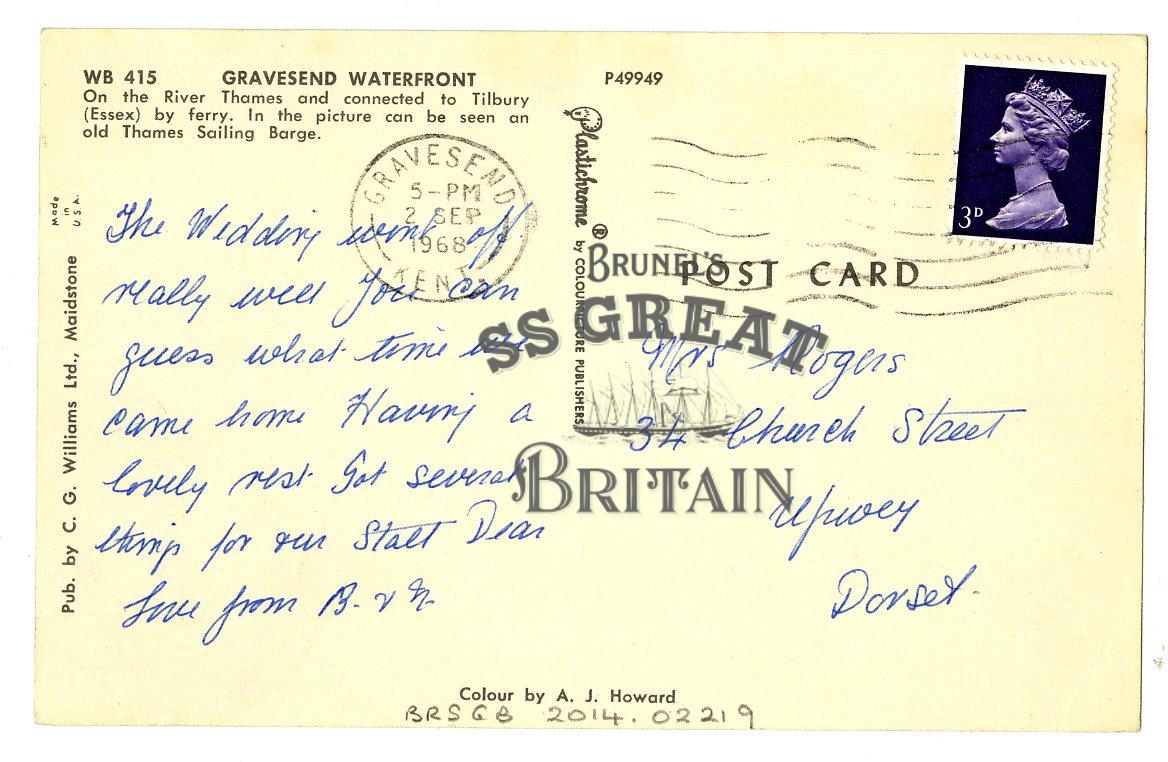 WB 415 GRAVESEND WATERFRONT
On the River Thames and connected to Tilbury
(Essex) by ferry. In the picture can be seen an
old Thames Sailing Barge.
P49949
Made
in
U.S.A.
Pub. by C. G. Williams Ltd., Maidstone
Plastichrome ® by COLOURPICTURE PUBLISHERS
GRAVESEND
5-PM
2 SEP
1968
KENT
3D
POST CARD
BRUNEL'S
SS GREAT
BRITAIN
The Wedding went off
really well You can
guess what time we
came home Having a
lovely rest Got several
things for our Stall Dear
Love from B. &
Mrs Rogers
34 Church Street
Upwey
Dorset.
Colour by A. J. Howard
BRSGB 2014.02219